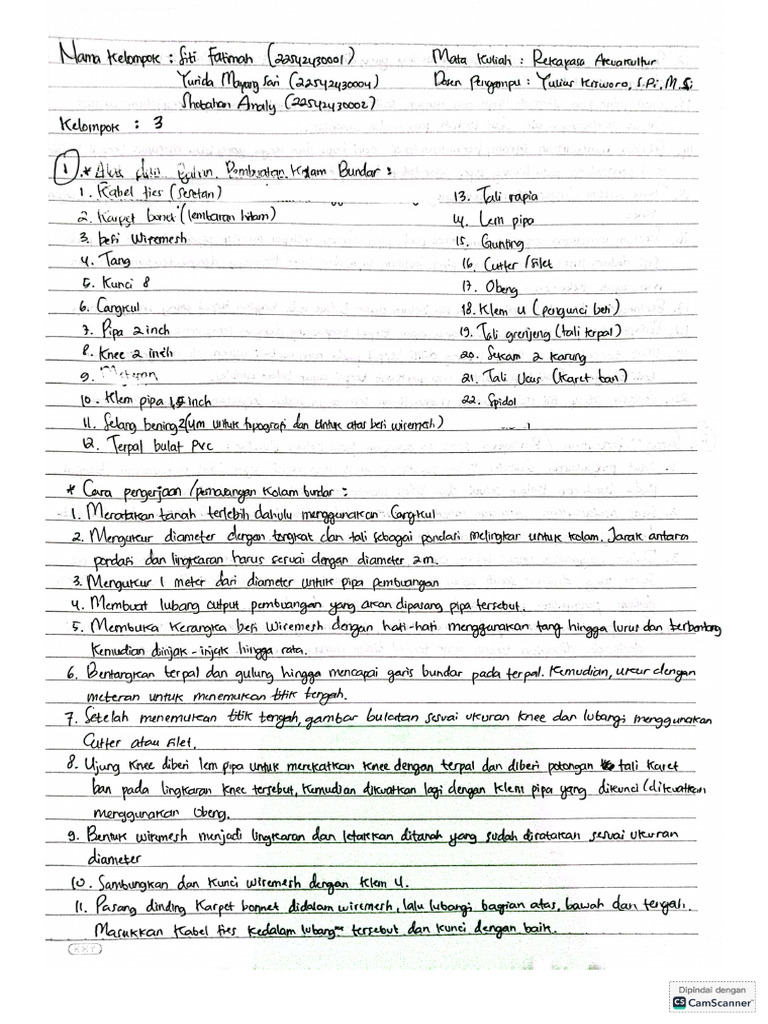 Nama Kelompok : Siti Fatimah (22542430001)
Mata Kuliah : Rekayasa Akuakultur
Yurida Mayang Sari (22542430004)
Dosen Pengampu : Yulius Kisworo, S.Pi, M.Si
Shobahan Amaly (22542430002)
Kelompok : 3
1. * Alat dan Bahan Pembuatan Kolam Bundar :
1. Kabel ties (sesetan)
2. Karpet bonet (lembaran hitam)
3. besi wiremesh
4. Tang
5. Kunci 8
6. Cangkul
7. Pipa 2 inch
8. Knee 2 inch
9. Meteran
10. Klem pipa 1,5 inch
11. Selang bening 2(4m untuk topografi dan untuk atas besi wiremesh)
12. Terpal bulat pvc
13. Tali rapia
14. Lem pipa
15. Gunting
16. Cutter / silet
17. Obeng
18. Klem u (pengunci besi)
19. Tali grenjeng (tali terpal)
20. Sekam 2 karung
21. Tali Ucus (karet ban)
22. Spidol
* Cara pengerjaan /pemasangan Kolam bundar :
1. Meratakan tanah terlebih dahulu menggunakan Cangkul
2. Mengukur diameter dengan tongkat dan tali sebagai pondasi melingkar untuk kolam. Jarak antara
pondasi dan lingkaran harus sesuai dengan diameter 2m.
3. Mengukur 1 meter dari diameter untuk pipa pembuangan
4. Membuat lubang output pembuangan yang akan dipasang pipa tersebut.
5. Membuka Kerangka besi wiremesh dengan hati-hati menggunakan tang hingga lurus dan terbentang
Kemudian diinjak-injak hingga rata.
6. Bentangkan terpal dan gulung hingga mencapai garis bundar pada terpal. Kemudian, ukur dengan
meteran untuk menemukan titik tengah.
7. Setelah menemukan titik tengah, gambar bulatan sesuai ukuran knee dan lubangi menggunakan
Cutter atau silet.
8. Ujung Knee diberi lem pipa untuk merekatkan knee dengan terpal dan diberi potongan tali karet
ban pada lingkaran knee tersebut, Kemudian dikuatkan lagi dengan klem pipa yang dikunci (dikuatkan
menggunakan Obeng.
9. Bentuk wiremesh menjadi lingkaran dan letakkan ditanah yang sudah diratakan sesuai ukuran
diameter
10. Sambungkan dan Kunci wiremesh dengan klem U.
11. Pasang dinding Karpet bonnet didalam wiremesh, lalu lubangi bagian atas, bawah dan tengah.
Masukkan Kabel ties Kedalam lubang" tersebut dan kunci dengan baik.
Dipindai dengan
CS CamScanner